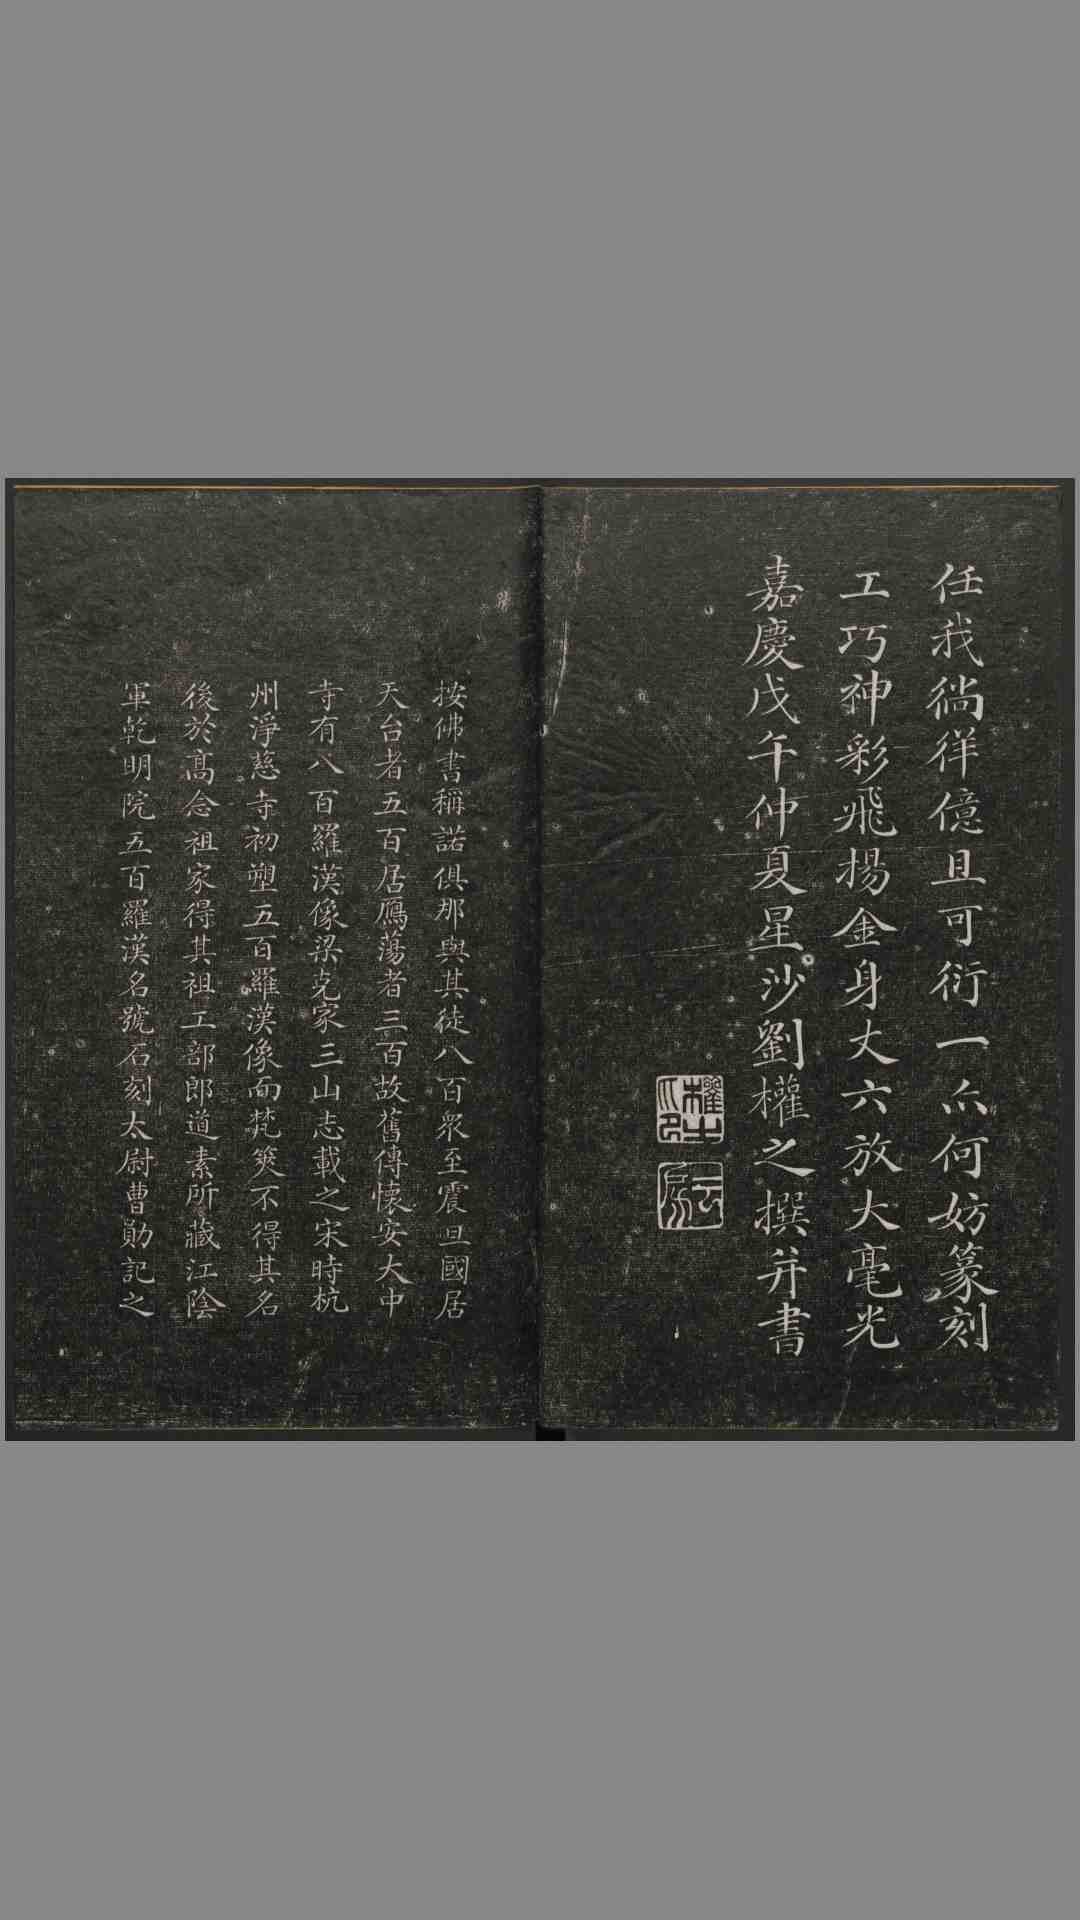 任我徜徉億且可衍一亦何妨篆刻
工巧神彩飛揚金身丈六放大毫光
嘉慶戊午仲夏星沙劉權之撰并書
權之
按佛書稱諾俱那與其徒八百眾至震旦國居
天台者五百居鴈蕩者三百故舊傳懷安大中
寺有八百羅漢像梁克家三山志載之宋時杭
州淨慈寺初塑五百羅漢像而梵筴不得其名
後於高念祖家得其祖工部郎道素所藏江陰
軍乾明院五百羅漢名號石刻太尉曹勛記之